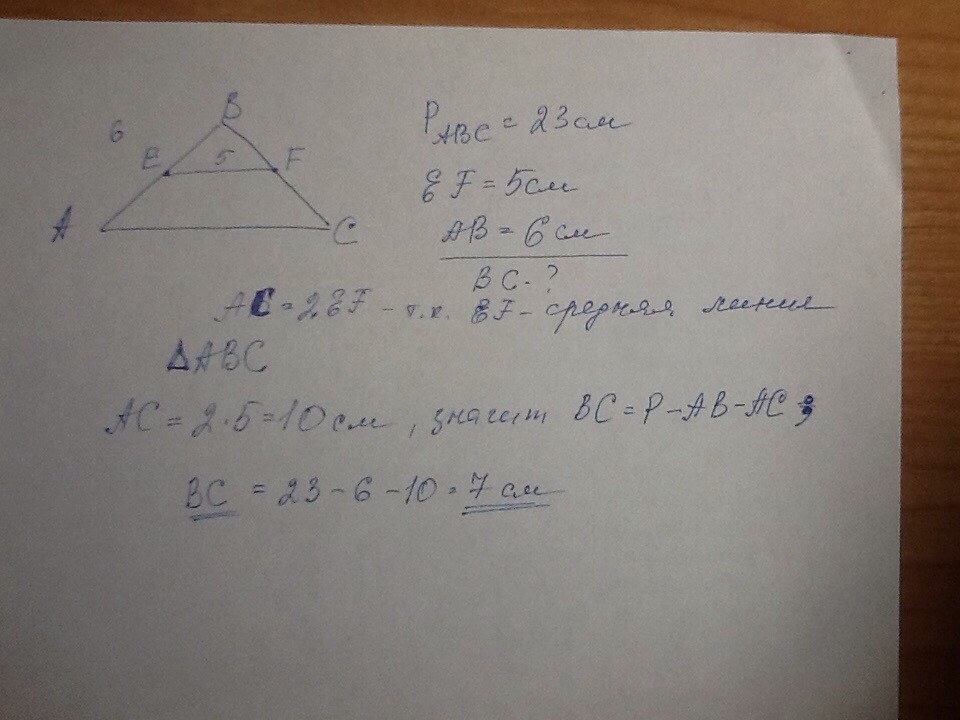 B
6
E 5 F
A C
P ABC = 23 см
EF = 5 см
AB = 6 см
BC - ?
AC = 2EF - т.к. EF - средняя линия
Δ ABC
AC = 2·5 = 10 см, значит BC = P - AB - AC;
BC = 23 - 6 - 10 = 7 см